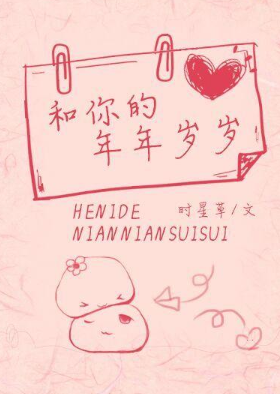 和你的
年年岁岁
HENIDE
时星草/文
NIANNIANSUISUI